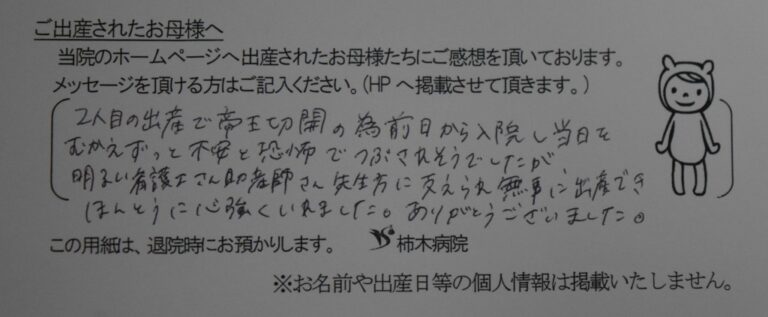 ご出産されたお母様へ
当院のホームページへ出産されたお母様たちにご感想を頂いております。
メッセージを頂ける方はご記入ください。(HPへ掲載させて頂きます。)
2人目の出産で帝王切開の為前日から入院し当日を
むかえずっと不安と恐怖でつぶされそうでしたが、
明るい看護士さん助産師さん先生方に支えられ無事に出産でき
ほんとうに心強くいれました。ありがとうございました。
この用紙は、退院時にお預かりします。 柿木病院
※お名前や出産日等の個人情報は掲載いたしません。